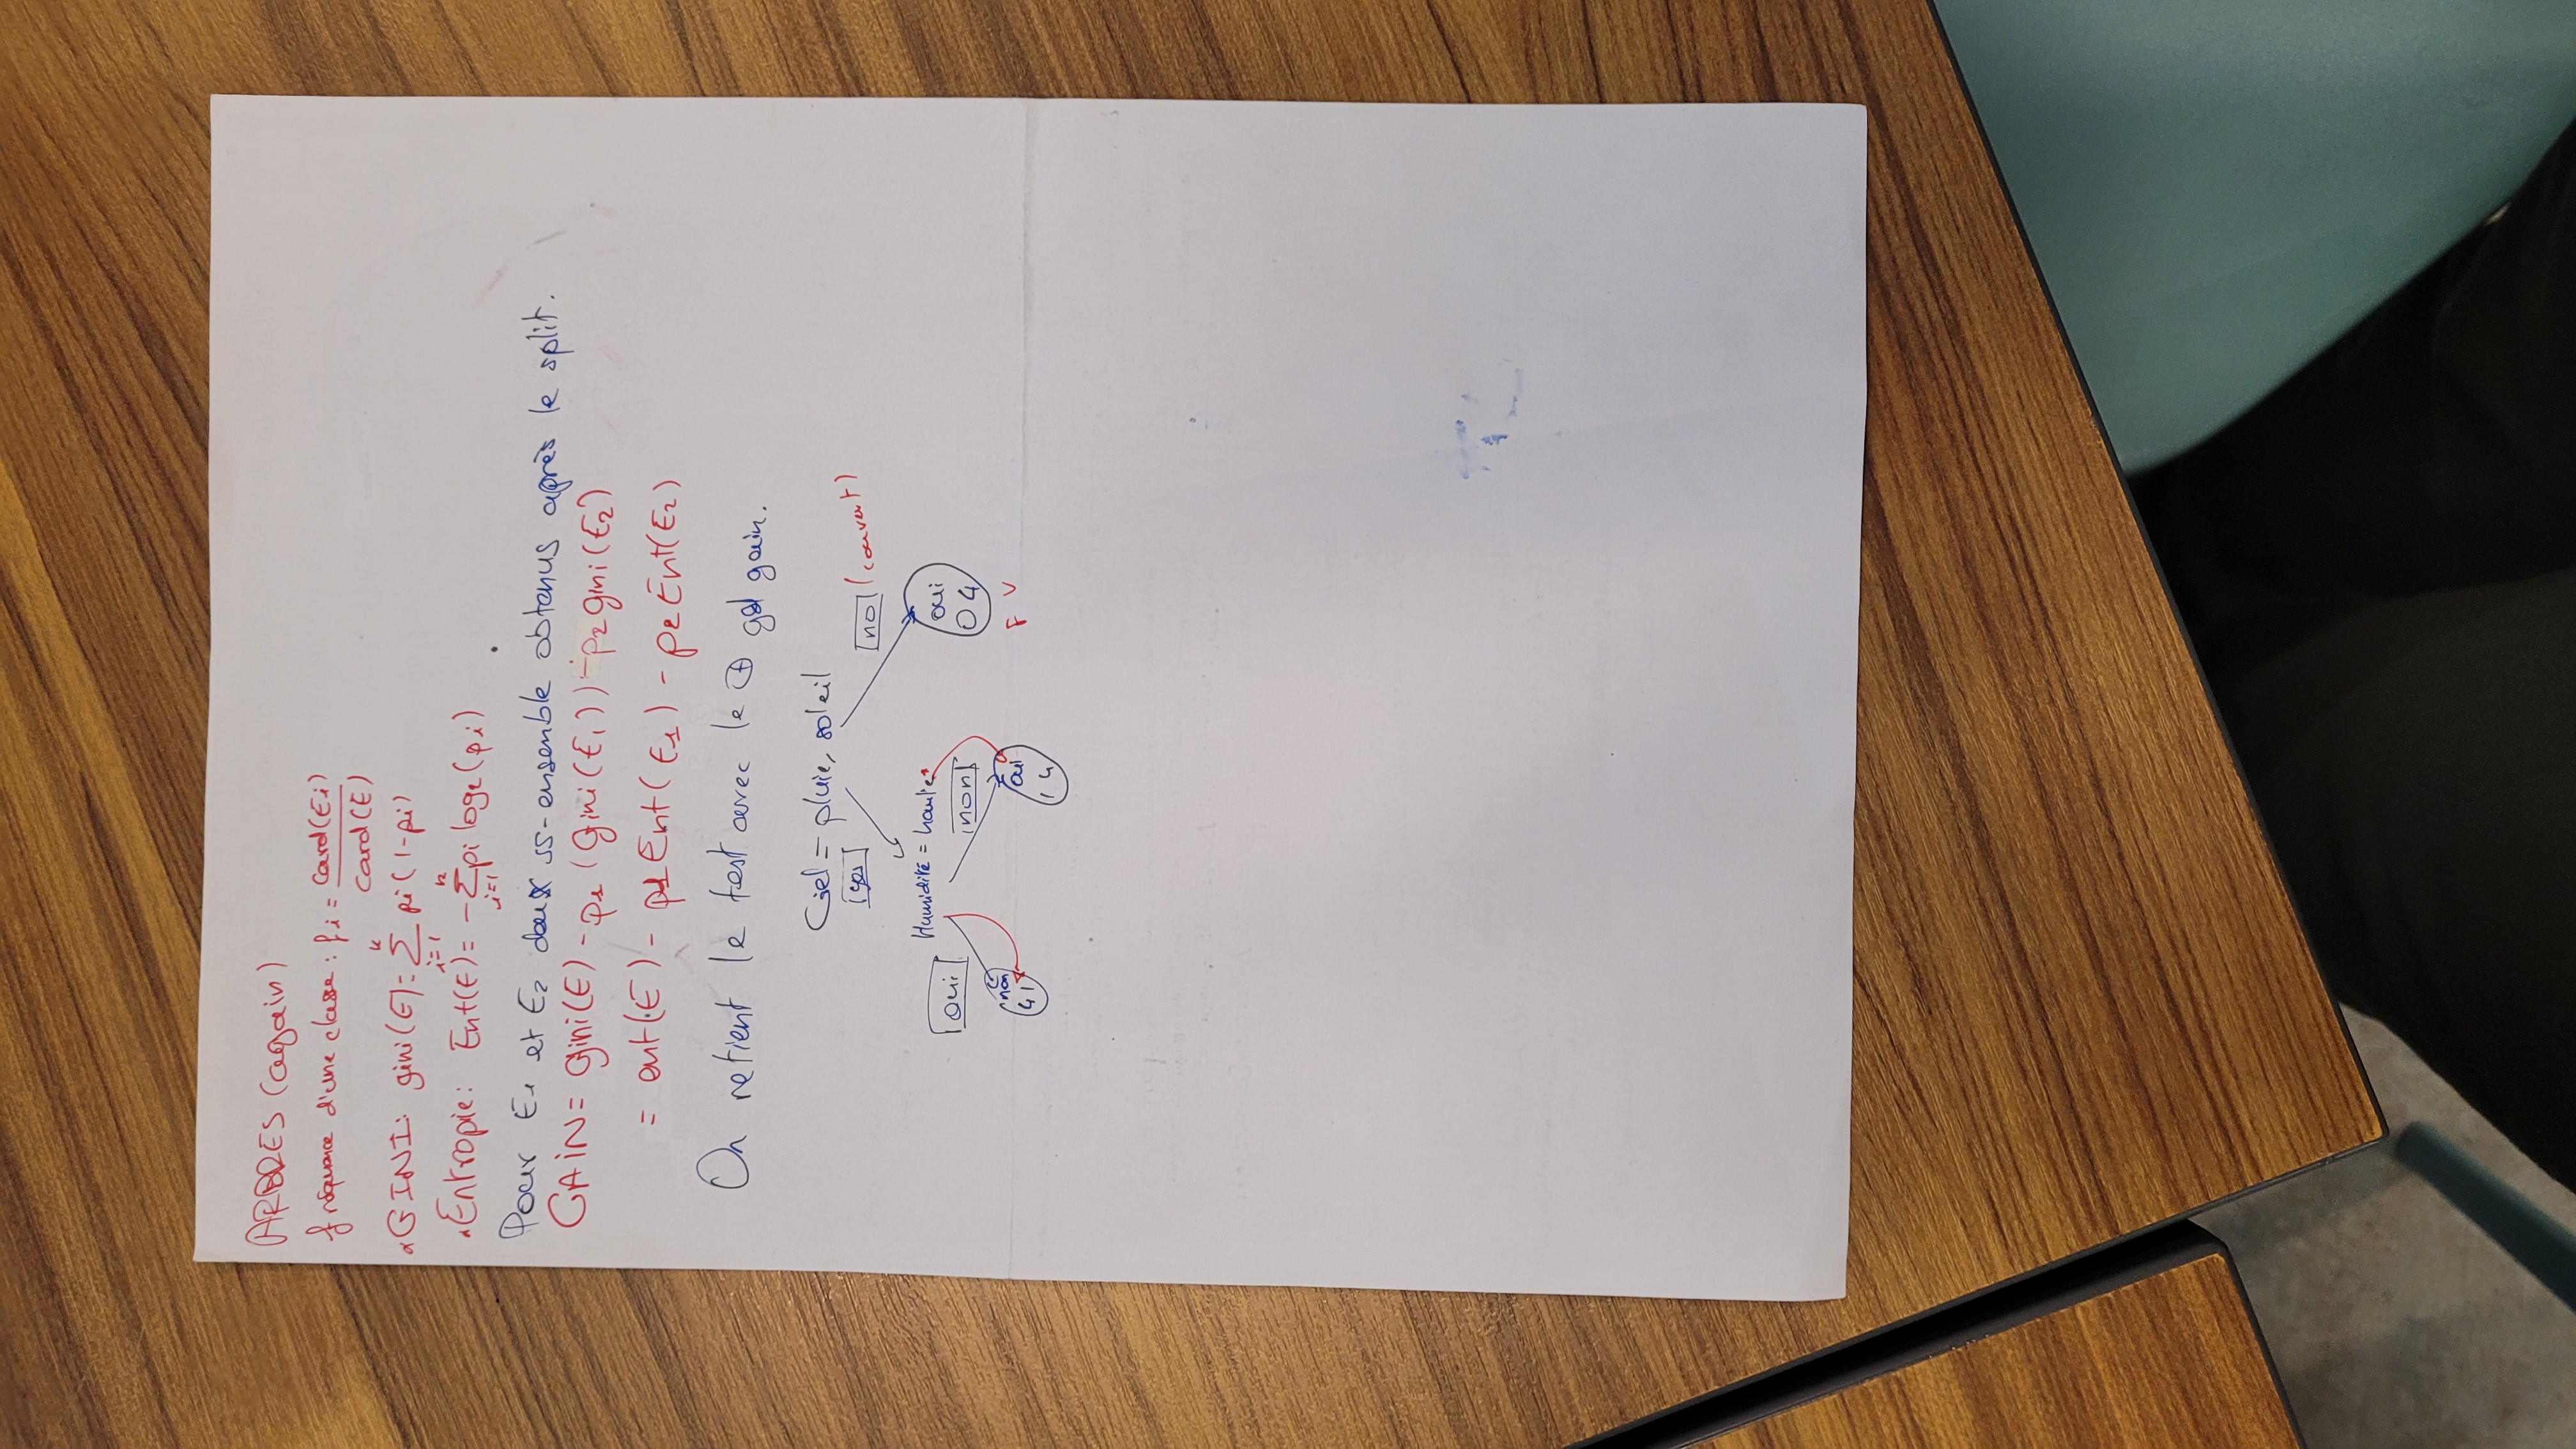 ARBRES (again)
fréquence d'une classe : fi = card(Ei) / card(E)
GINI: gini(E) = k Σ i=1 pi (1-pi)
Entropie: Ent(E) = - k Σ i=1 pi log2(pi)
Pour E1 et E2 deux ss-ensemble obtenus après le split.
GAIN = gini(E) - p1 (gini(E1)) - p2 gini(E2)
= ent(E) - p1 Ent(E1) - p2 Ent(E2)
On retient le test avec le + gd gain.
Ciel = pluie, soleil
yes
no (couvert)
Humidité = haute
oui
non
oui
0 4
F V
non
4 1
oui
1 4